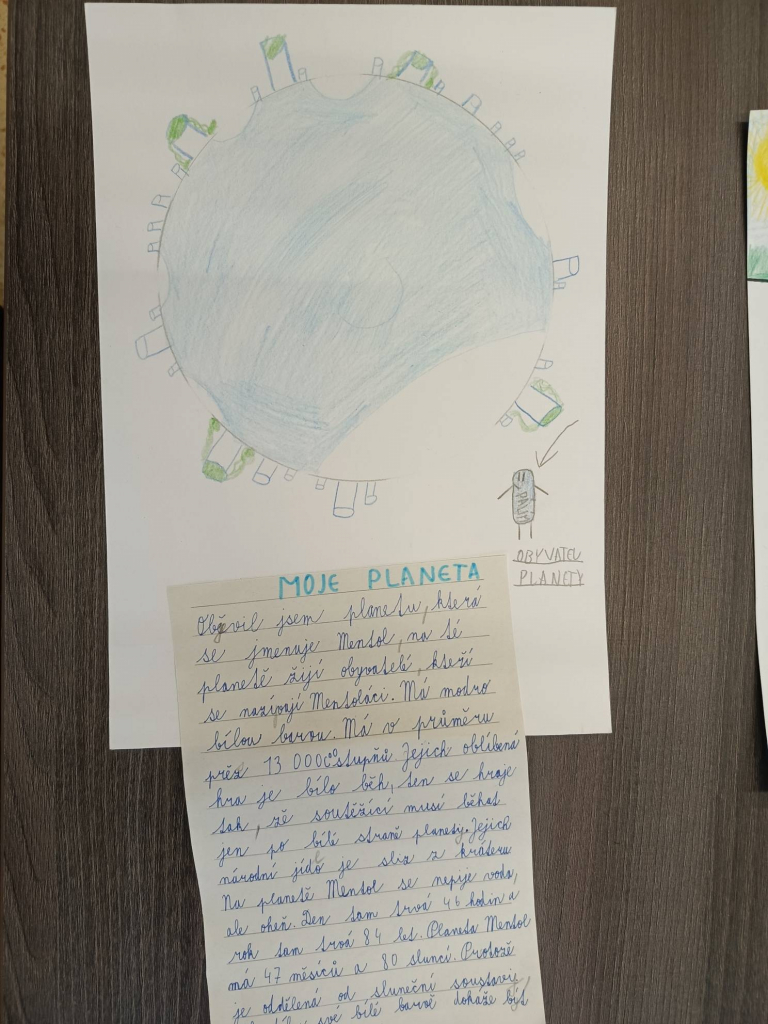 PALM
OBYVATEL
PLANETY
MOJE PLANETA
Objevil jsem planetu, která
se jmenuje Mentol, na té
planetě žijí obyvatelé, kteří
se nazívají Mentoláci. Má modro
bílou barvu. Má v průměru
přez 13 000C° stupňů. Jejich oblíbená
hra je bílo běh, ten se hraje
tak, že soutěžící musí běhat
jen po bílé straně planety. Jejich
národní jídlo je sba z kráteru
Na planetě Mentol se nepije voda,
ale oheň. Den tam trvá 46 hodin a
rok tam trvá 84 let. Planeta Mentol
má 47 měsíců a 80 sluncí. Protože
je oddělená od sluneční soustavy
své bílé barvě dokáže být